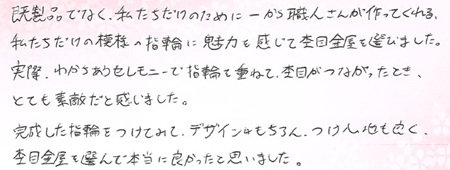 既製品でなく、私たちだけのために一から職人さんが作ってくれる、
私たちだけの模様の指輪に魅力を感じて杢目金屋を選びました。
実際、わかちあいセレモニーで指輪を重ねて、杢目がつながったとき、
とても素敵だと感じました。
完成した指輪をつけてみて、デザインはもちろん、つけ心地も良く、
杢目金屋を選んで本当に良かったと思いました。